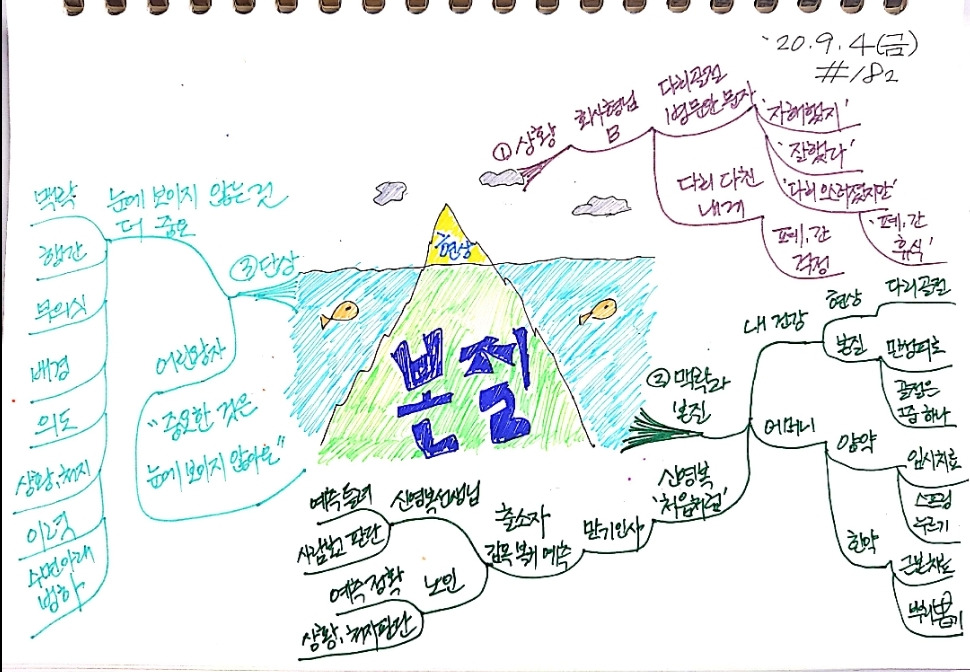 '20.9.4(금)
#182
현상
본질
① 상황
회사형님
B
다리골절
1명문안 문자
'자해했지'
'잘했다'
'다리 부러졌지만'
'폐, 간
휴식'
다리 다친
내게
폐, 간
걱정
② 맥락과
본질
내 건강
현상
다리골절
본질
만성피로
골절은
그중 하나
어머니
양약
임시치료
스프링
누르기
한약
근본치료
뿌리뽑기
신영복
'처음처럼'
만기인사
출소자
감옥 복귀 예측
신영복선생님
예측 틀려
사람보고 판단
노인
예측 정확
상황, 처지판단
③ 단상
눈에 보이지 않는 것
더 중요
맥락
행간
무의식
배경
의도
상황, 처지
이력
수면아래
빙하
어린왕자
"중요한 것은
눈에 보이지 않아요"